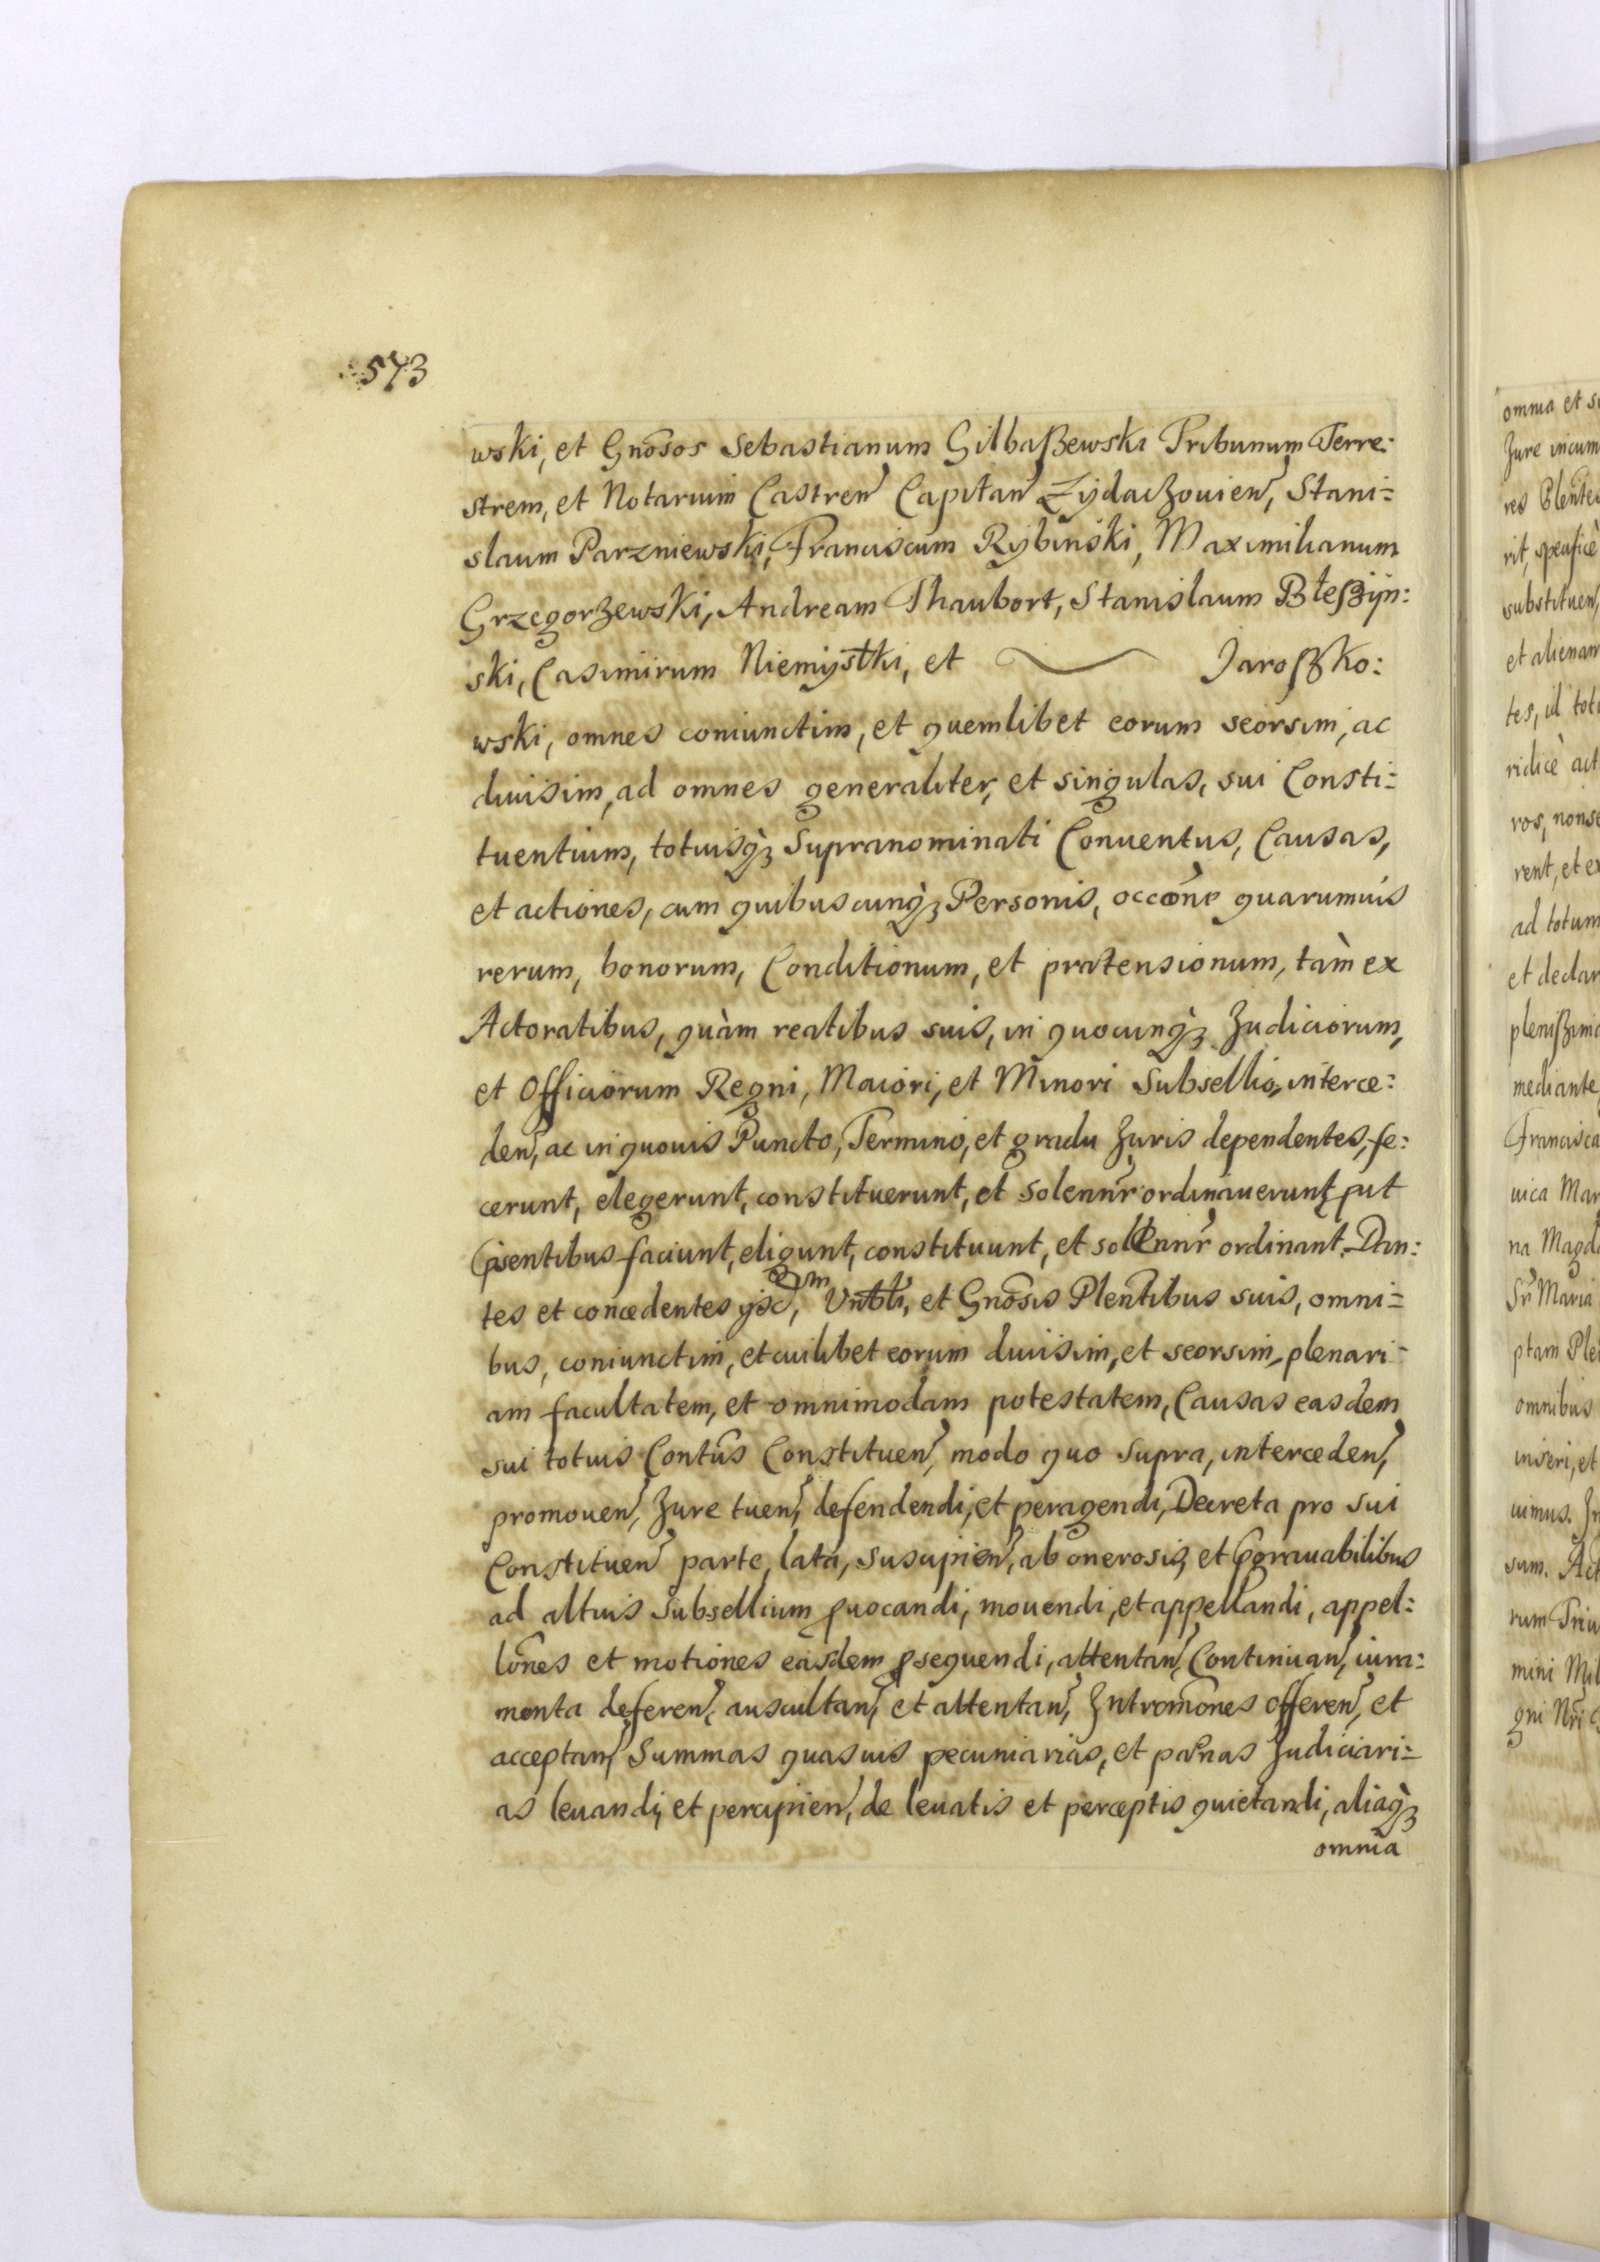 573
wski, et Gnõsos Sebastianum GilbaßEwski Tribunum Terre:
strem, et Notarium Castren Capitan Zÿdaczouien, Stani=
slaum Parzniewski, Franciscum Rÿbinski, Maximilianum
Grzegorzewski, Andream Thaubort, Stanislaum Błeßÿn:
ski, Casimirum Niemÿstki, et Jaroßko:
wski, omnes coniunctim, et quemlibet eorum seorsim, ac
diuisim, ad omnes generaliter, et singulas, sui Consti=
tuentium, totiusq̀ꝫ Supranominati Conuentus, Causas,
et actiones, cum quibuscunq̀ꝫ Personis, occõne quarumuis
rerum, bonorum, Conditionum, et prætensionum, tàm ex
Actoratibus, quàm reatibus suis, in quocunq̀ꝫ Judiciorum,
et Officiorum Regni, Maiori, et Minori Subsellio, interce:
den, ac in quouis Puncto, Termino, et gradu Juris dependentes, fe:
cerunt, elegerunt, constituerunt, et solennr ordinauerunt, put
pñsentibus faciunt, eligunt, constituunt, et sollennr ordinant. Dan:
tes et concedentes ÿsd, m Vnbli, et Gnõsis Plentibus suis, omni=
bus, coniunctim, et cuilibet eorum diuisim, et seorsim, plenari=
am facultatem, et omnimodam potestatem, Causas easdem
sui totius Contũs Constituen, modo quo supra, interceden,
promouen, Jure tuen, defendendi, et peragendi, Decreta pro sui
Constituen parte, lata, suscipien, ab onerosis, et grauabilibus
ad altius Subsellium ꝓuocandi, mouendi, et appellandi, appel:
lõnes et motiones easdem ꝓsequendi, attentan, Continuan, iura:
menta deferen, auscultan, et attentan, Intromõnes offeren, et
acceptan, Summas quasuis pecuniarias, et pœnas Judiciari=
as leuandi, et percipien, de leuatis et perceptis quietandi, aliaq̀ꝫ
omnia
omnia et
Jure incum
res Plente
rit, specificè
substituen,
et alienam
tes, id tot
ridicè act
ros, nonse
rent, et ex
ad totum
et declar
plenißim
mediante
Francisca
uica Mar
na Magd
Sr Maria
ptam Ple
omnibus
inseri, et
uimus. Jn
sum. Act
rum Priu
mini Mil
gni Nri